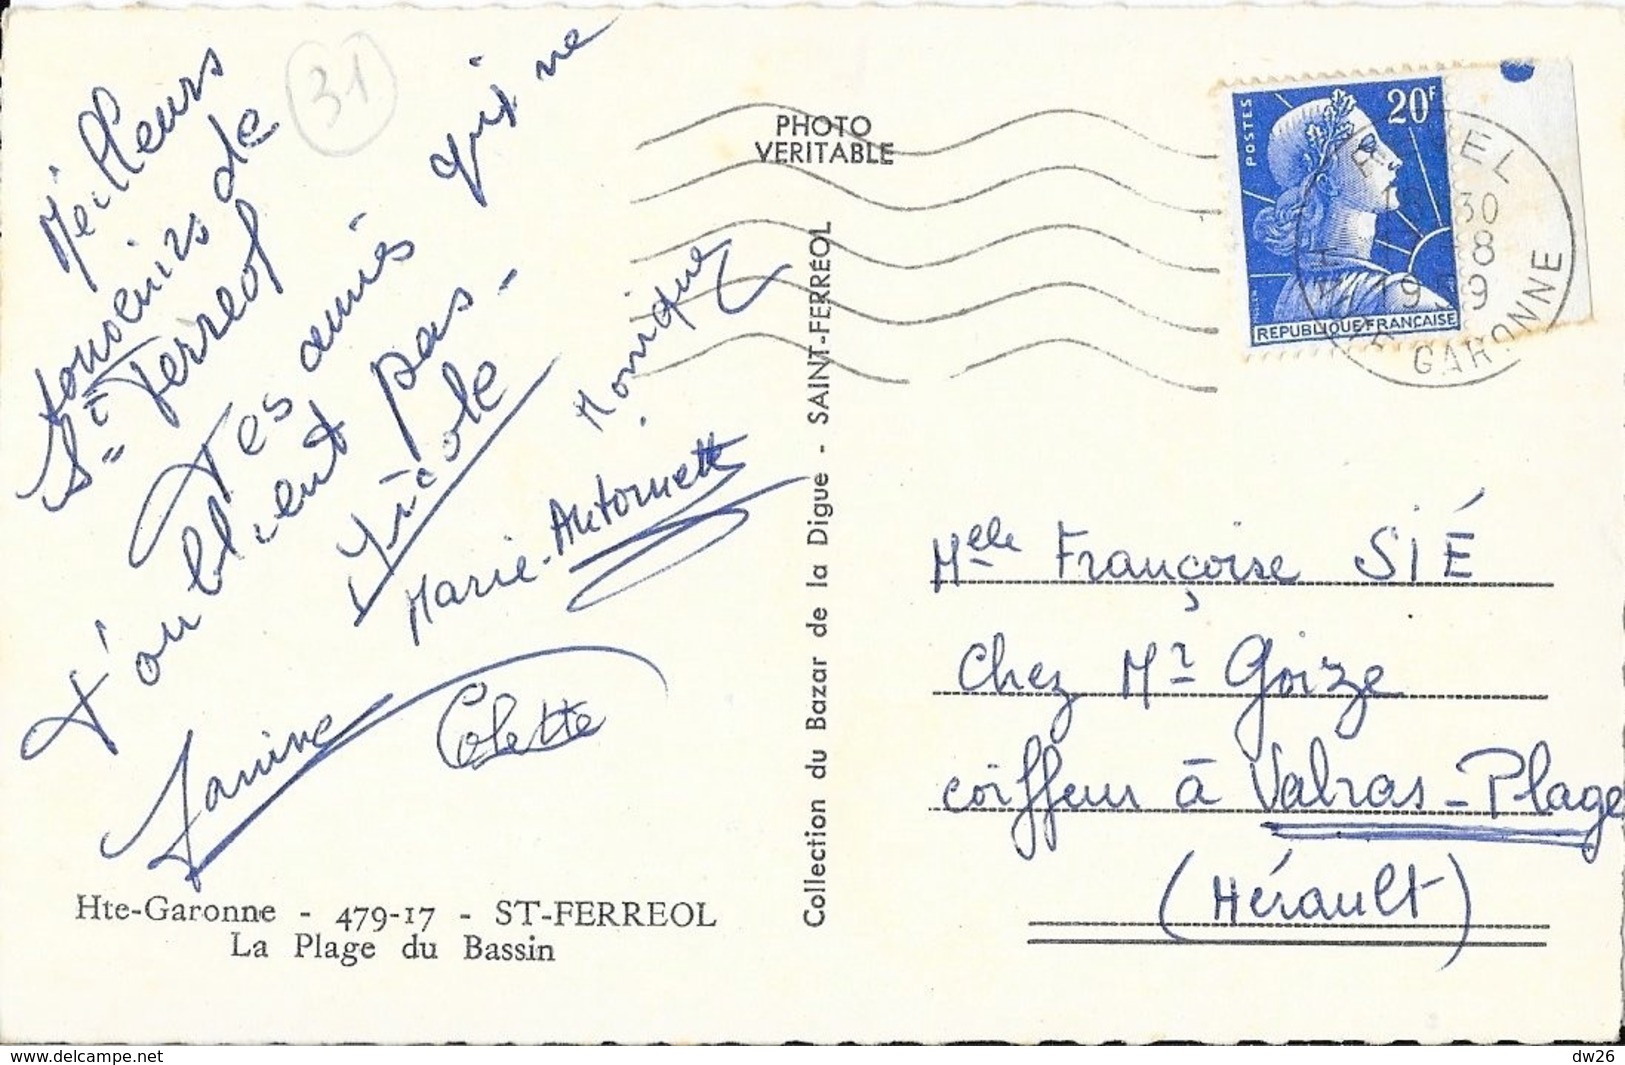 Meilleurs
souvenirs de
St Ferreol
Tes amies qui ne
t'oublient pas.
Nicole
Monique
Marie-Antoinette
Janine
Colette
31
PHOTO
VERITABLE
POSTES
20F
REPUBLIQUE FRANÇAISE
30
8
1959
GARONNE
Collection du Bazar de la Digue - SAINT-FERRÉOL
Melle Françoise SIÉ
Chez Mr Goize
coiffeur à Valras-Plage
(Hérault)
Hte-Garonne - 479-17 - ST-FERREOL
La Plage du Bassin
www.delcampe.net
dw26